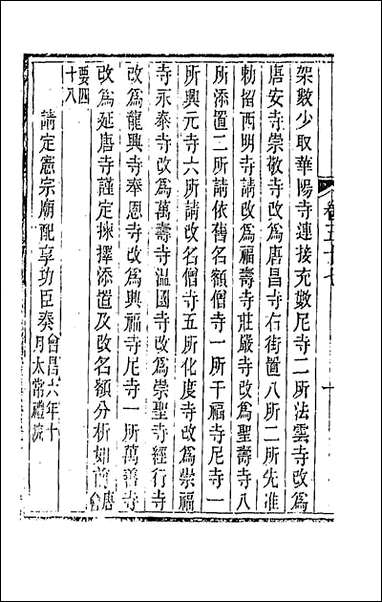 架數少取華陽寺連接充數尼寺二所法雲寺改爲
唐安寺崇敬寺改爲唐昌寺右街置八所二所先准
勅招西明寺請改爲福壽寺莊嚴寺改爲聖壽寺八
所添置二所請依舊名額僧寺一所千福寺尼寺一
所興元寺六所請改名僧寺五所化度寺改爲崇福
寺永泰寺改爲萬壽寺温國寺改爲崇聖寺經行寺
改爲龍興寺奉恩寺改爲興福寺尼寺一所萬善寺
改爲延唐寺謹定揀擇添置及改名額分析如前會唐
要四
十八
請定憲宗廟配享功臣奏會昌六年十
月太常禮院
卷五十七